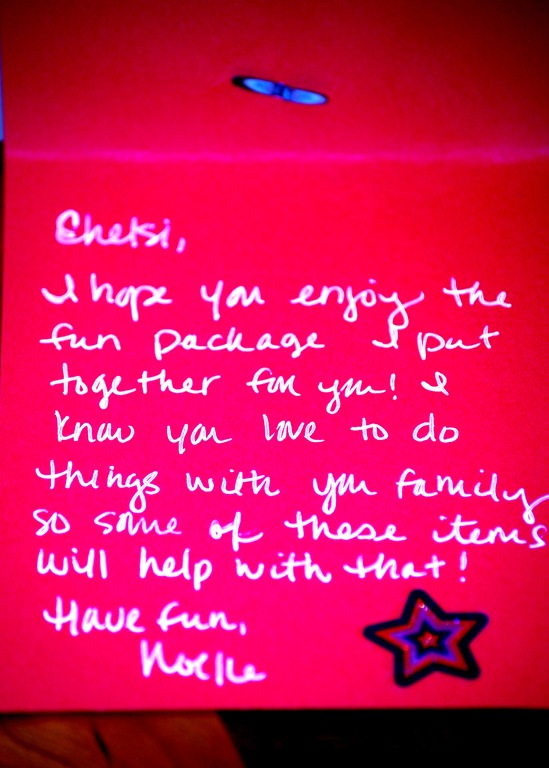 Chelsi,
I hope you enjoy the
fun package I put
together for you! I
know you love to do
things with you family
so some of these items
will help with that!
Have fun,
Noelle